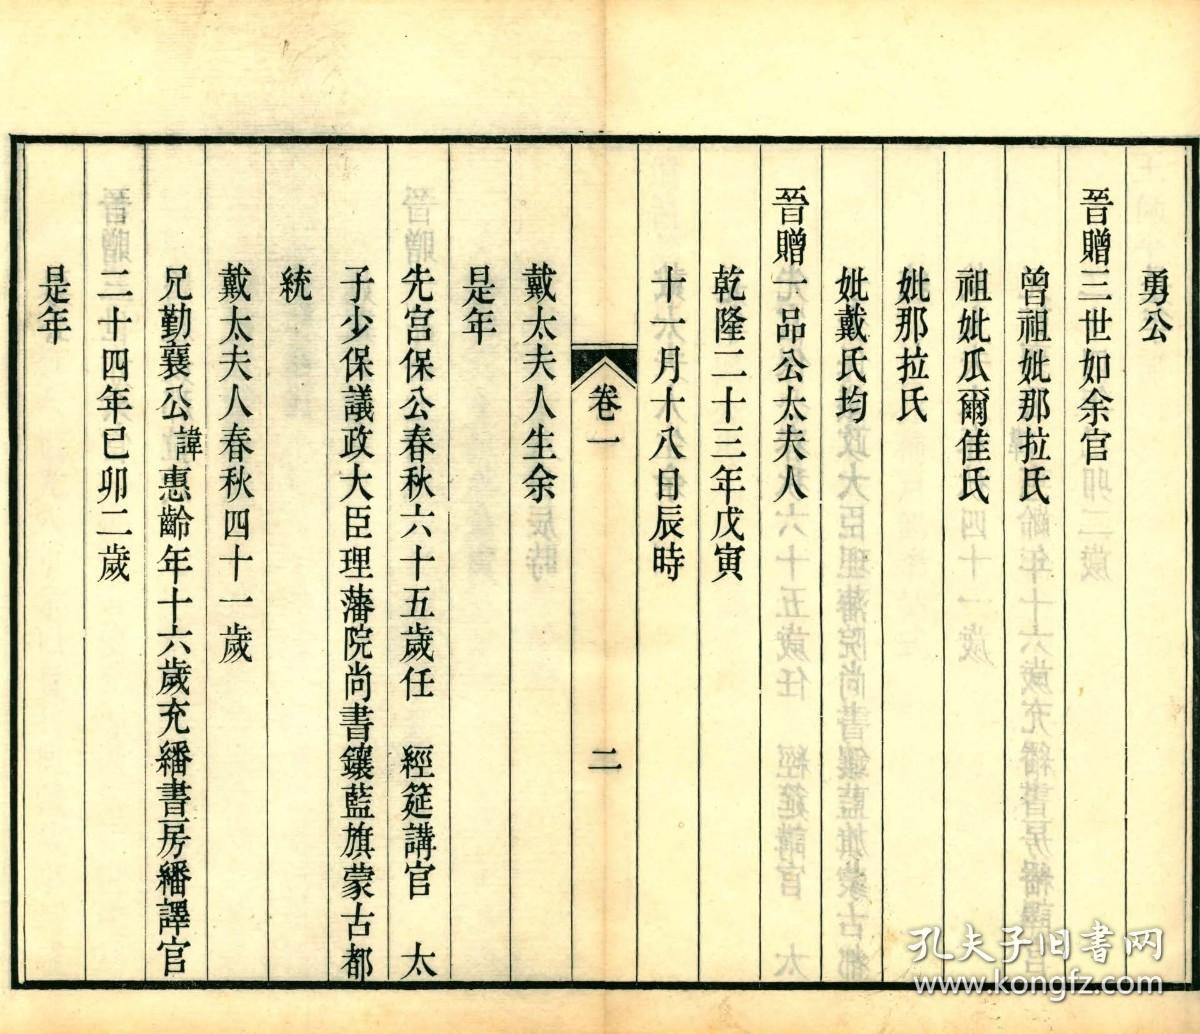 勇公
晉贈三世如余官
曾祖妣那拉氏
祖妣瓜爾佳氏
妣那拉氏
妣戴氏均
晉贈一品公太夫人
乾隆二十三年戊寅
十一月十八日辰時
卷一
二
戴太夫人生余
是年
先宮保公春秋六十五歲任 經筵講官 太
子少保議政大臣理藩院尚書鑲藍旗蒙古都
統
戴太夫人春秋四十一歲
兄勤襄公諱惠齡年十六歲充繙書房繙譯官
二十四年己卯二歲
是年
孔夫子旧书网
www.kongfz.com